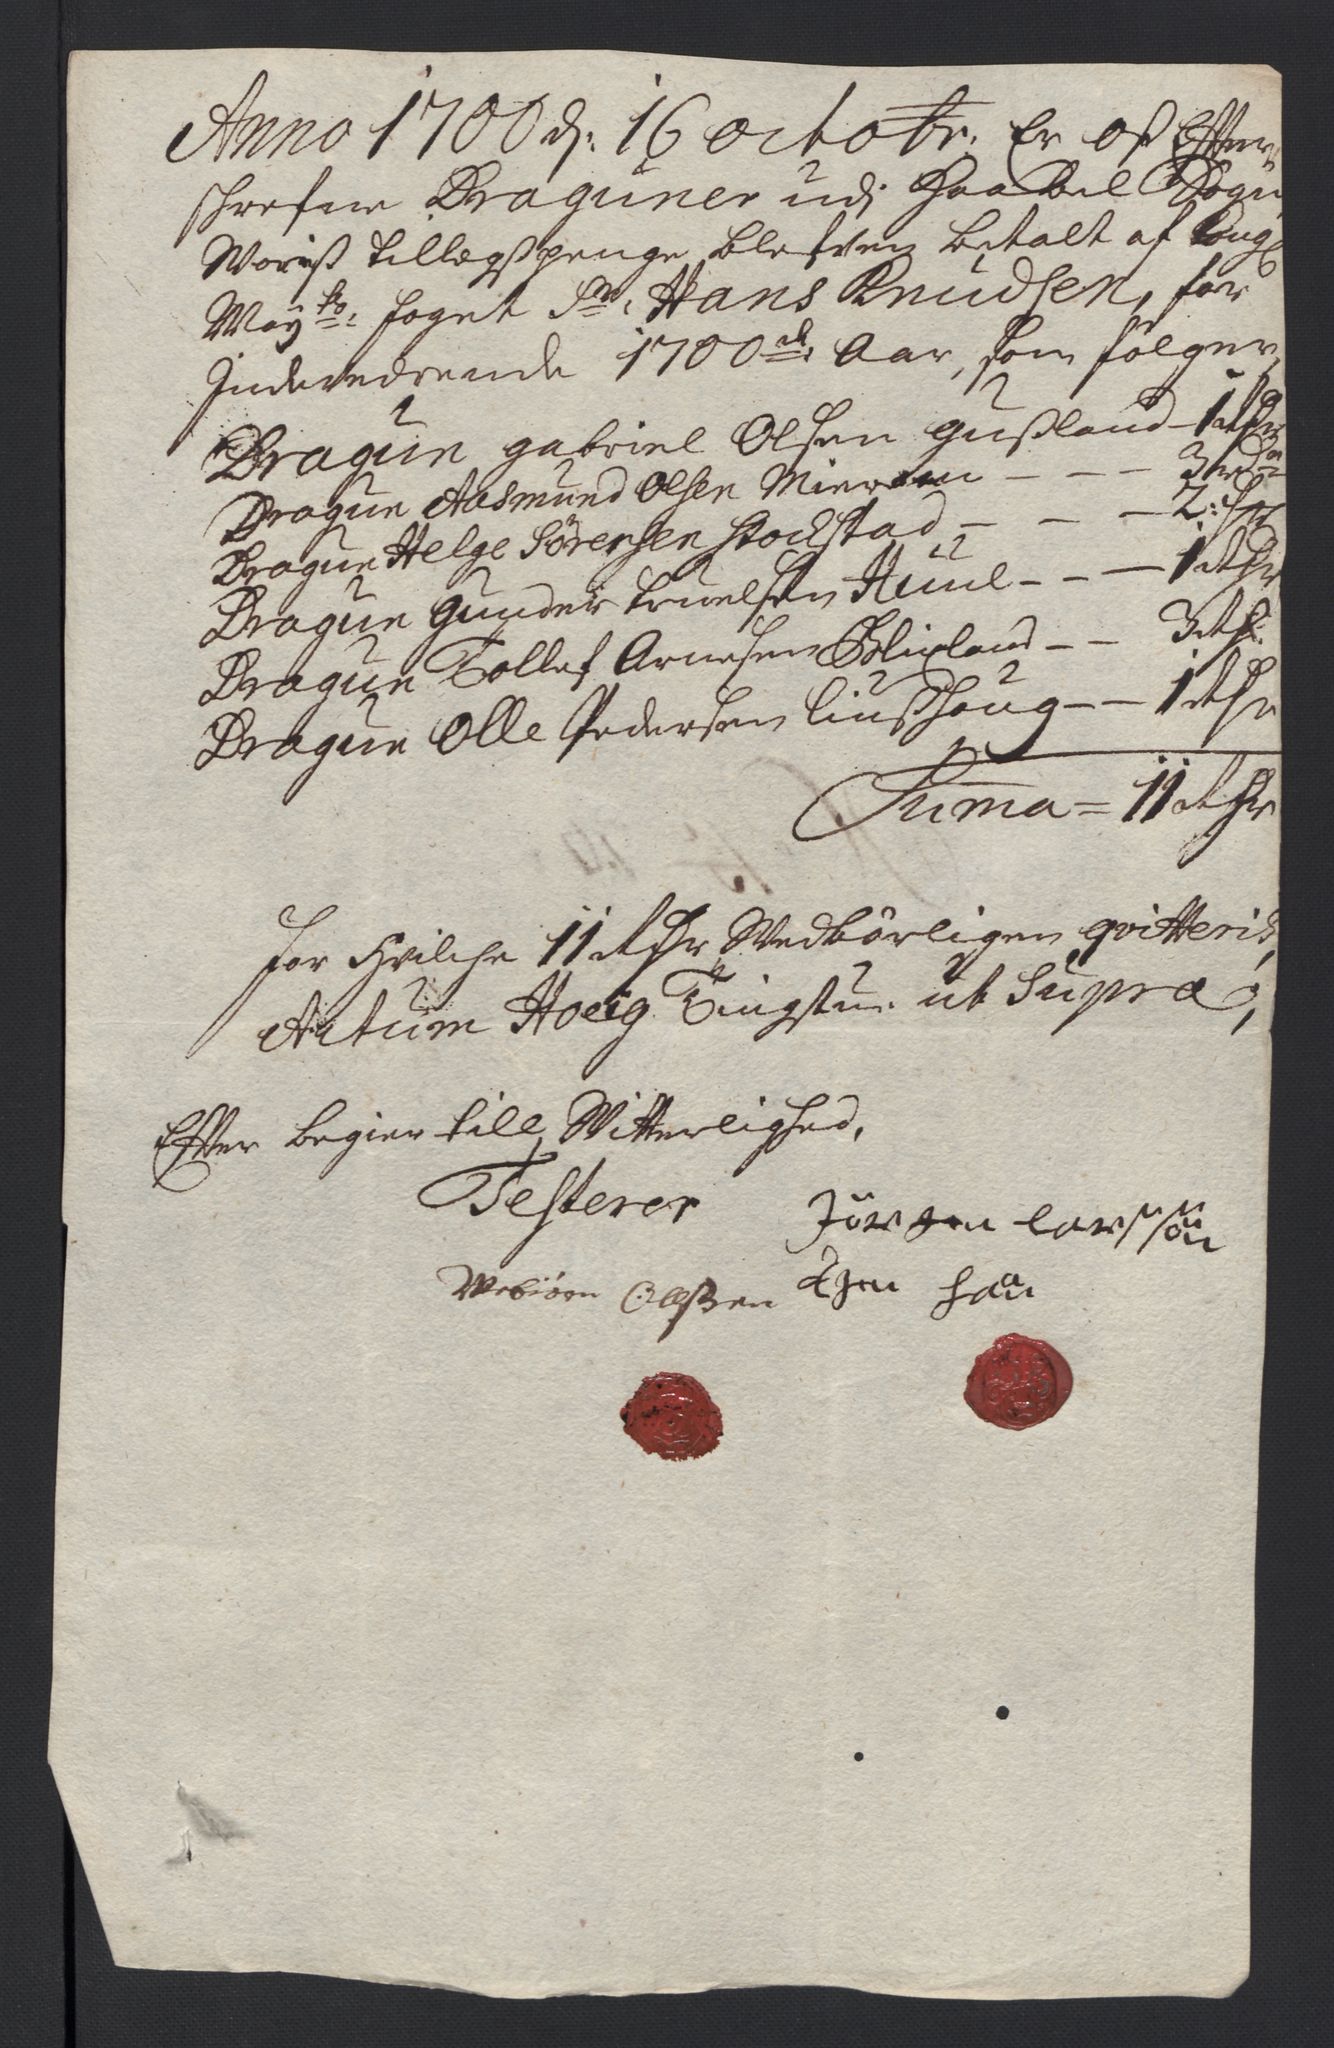 Anno 1700 d: 16 octobr: Er oß Effter,
schrefne Draguner udj Haabel Sogn,
Woriß tillegßpenge blefven betalt af Kongl
May.ts: foget Sr: Hans Knudsen, for
Indeverende 1700de: Aar, som fölger,
Dragun gabriel Olsen gußland - 1 Rdhr
Dragun Aasmund Olsen - - - 3 Rdr
Dragun Helge Sörensen Stochstad - - - 2: Rdr
Dragun Gunder truelsen Huul - - - 1 Rdhr
Dragun Tollef Arnesen Blixland - - 3 Rdr
Dragun Olle Pedersen liußhoug - - 1 Rdhr
Suma = 11 Rdhr
for hvilche 11 Rdhr Wedbörligen qvitteris,
Actum Hoeig Tingstue ut Supra,
Effter begier till Witterlighed,
Testerer
Jörgen larssön
Webiörn Olßen Egen han